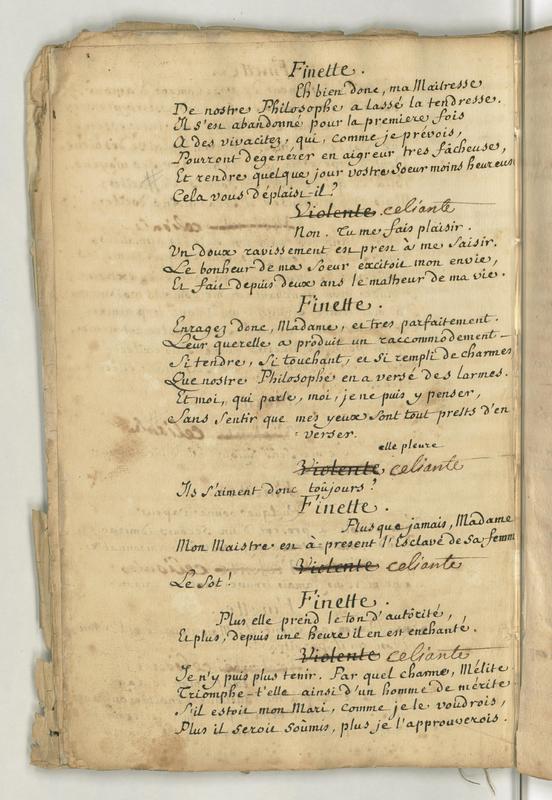 Finette.
Eh bien donc, ma Maitresse
De nostre Philosophe a lassé la tendresse.
Il s'est abandonné pour la premiere fois
A des vivacitez, qui, comme je prévois,
Pourront dégénérer en aigreur tres fâcheuse,
Et rendre quelque jour vostre Soeur moins heureuse
Cela vous déplaist-il?
Violente. celiante
Non. Tu me fais plaisir.
Un doux ravissement est prest à me saisir.
Le bonheur de ma Soeur excitoit mon envie,
Et fait depuis deux ans le malheur de ma vie.
Finette.
Enragez donc, Madame, et tres parfaitement.
Leur querelle a produit un raccommodement
Si tendre, Si touchant, et si rempli de charmes
Que nostre Philosophe en a versé des larmes.
Et moi, qui parle, moi, je ne puis y penser,
Sans Sentir que mes yeux sont tout prests d'en
verser.
elle pleure
Violente celiante
Ils s'aiment donc toûjours?
Finette.
Plus que jamais, Madame
Mon Maistre est à present l'Esclave de Sa femm
Violente celiante
Le Sot!
Finette.
Plus elle prend le ton d'autôrité,
Et plus, depuis une heure il en est enchanté.
Violente celiante
Je n'y puis plus tenir. Par quel charme, Mélite
Triomphe-t'elle ainsi d'un homme de mérite
S'il estoit mon Mari, comme je le voudrois,
Plus il seroit soûmis, plus je l'approuverois.